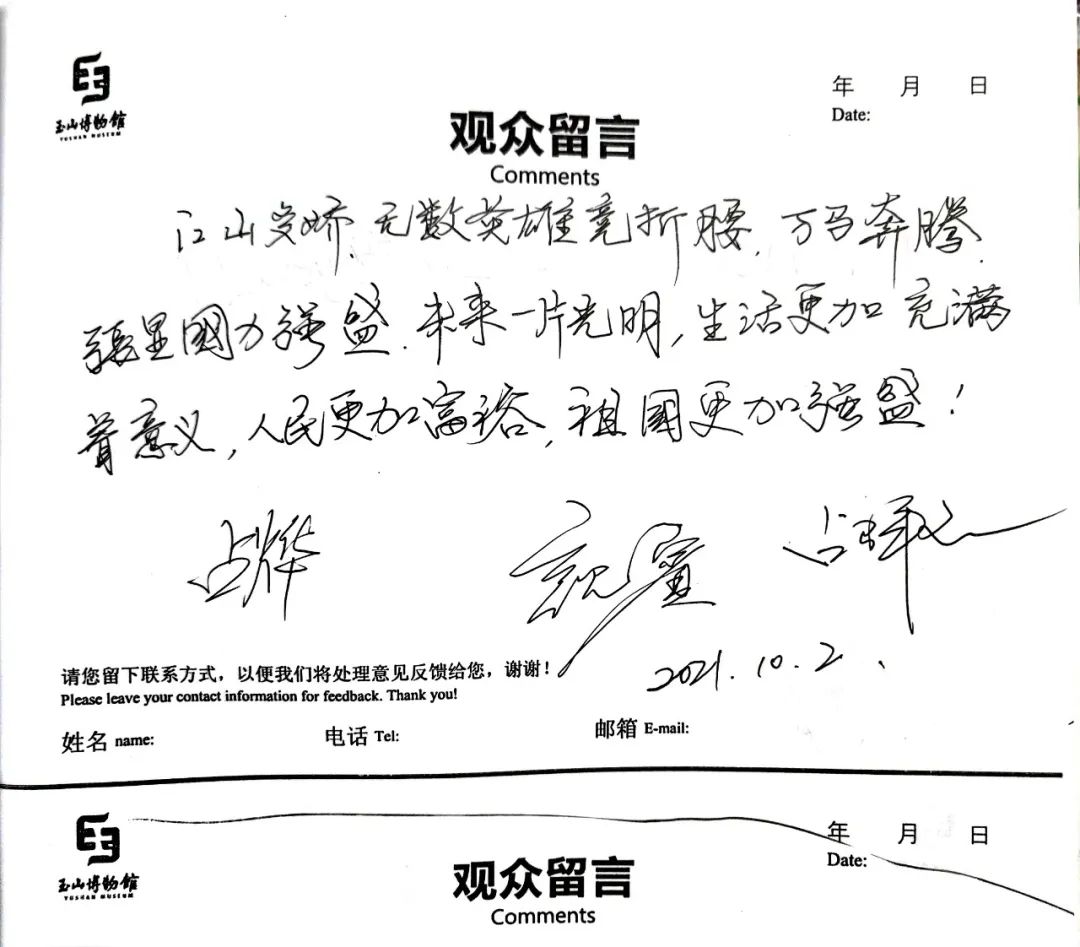 玉山博物馆
YUSHAN MUSEUM
年 月 日
Date:
观众留言
Comments
江山多娇,无数英雄竞折腰,万马奔腾,
张显國力强盛.未来一片光明,生活更加充满
着意义,人民更加富裕,祖国更加强盛!
占烨
2021.10.2.
请您留下联系方式,以便我们将处理意见反馈给您,谢谢!
Please leave your contact information for feedback. Thank you!
姓名 name:
电话 Tel:
邮箱 E-mail:
玉山博物馆
YUSHAN MUSEUM
年 月 日
Date:
观众留言
Comments